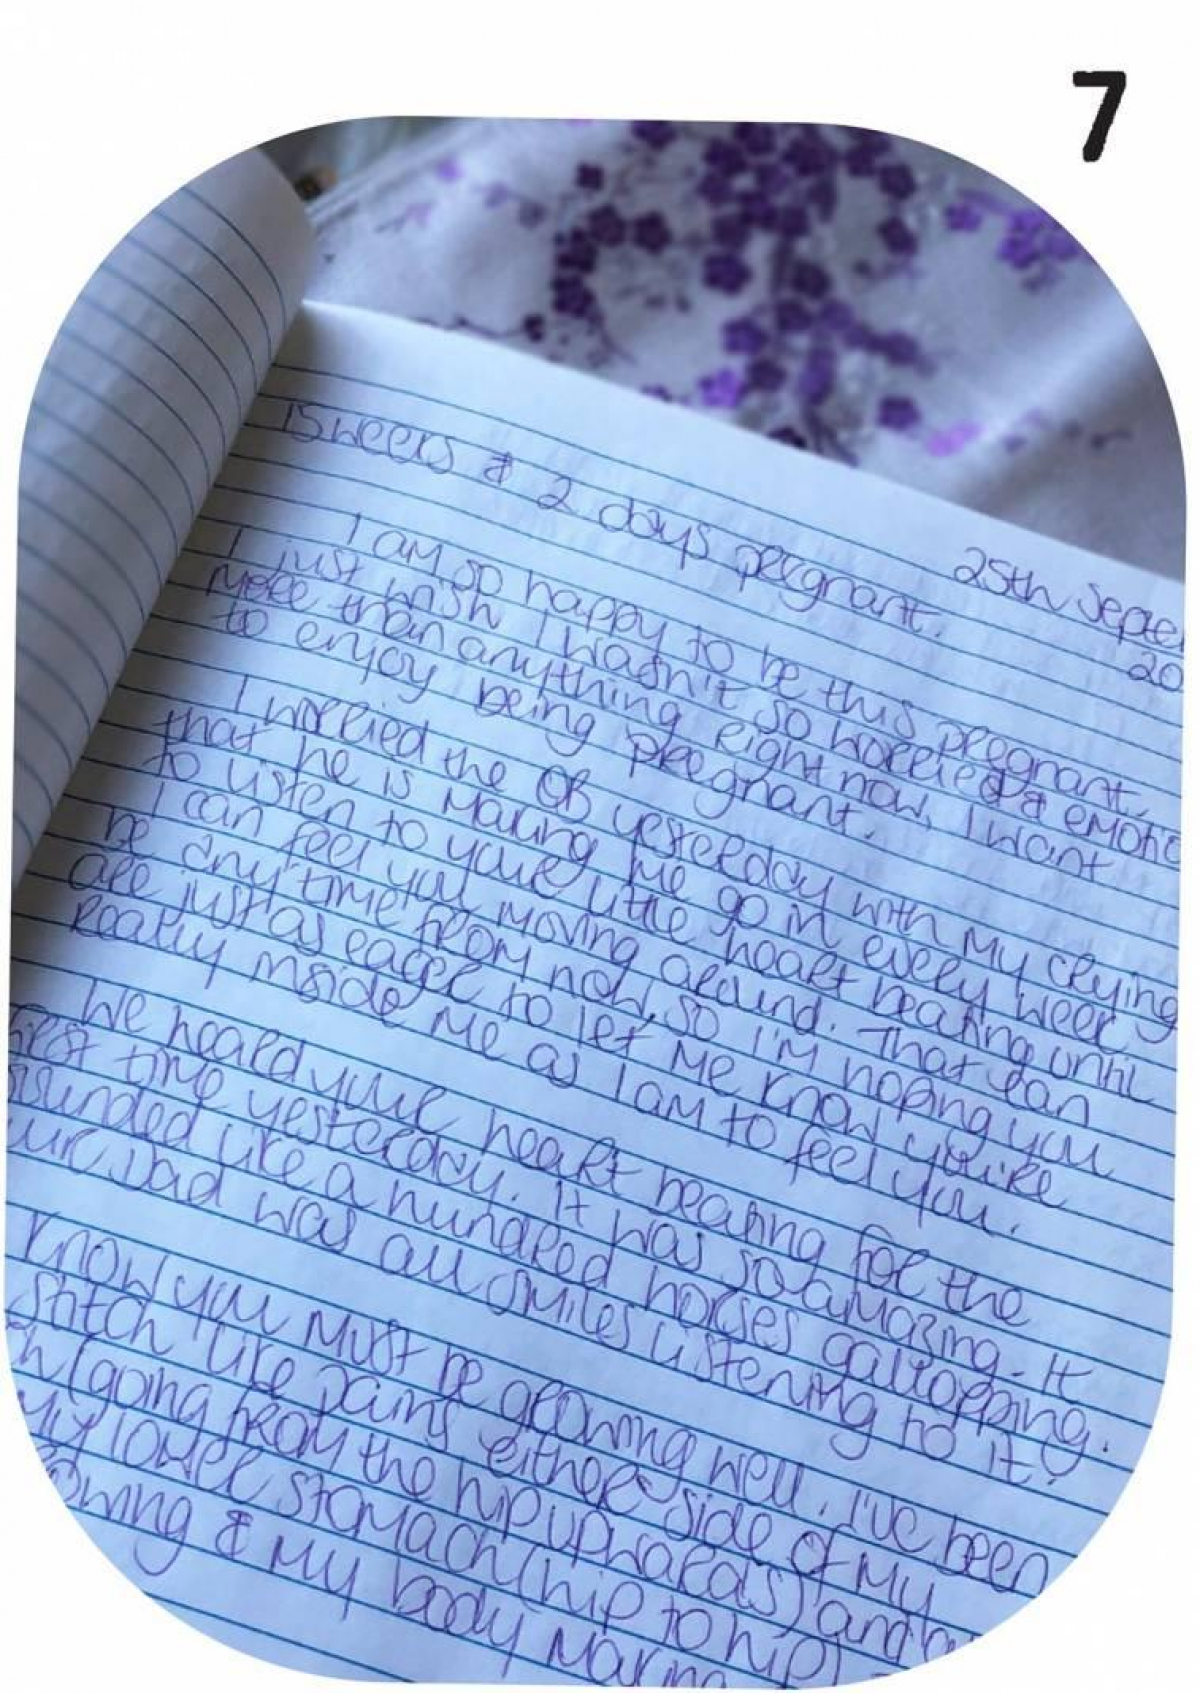 7
25th Septe
20
15 weeks & 2 days pregnant.
I am so happy to be this pregnant.
I just wish I wasn't so worried & emotio
More than anything right now, I want
to enjoy being pregnant.
I worried the OB yesterday with my crying
that he is making me go in every week
to listen to your little heart beating until
I can feel you moving around. That can
be anytime from now, so I'm hoping you
are just as eager to let me know you're
really inside me as I am to feel you.
We heard your heart beating for the
first time yesterday. It was so amazing. It
sounded like a hundred horses gallopping.
our Dad was all smiles listening to it.
know you must be growing well. I've been
stitch like pains either side of my
(going from the hip upwards) and
my lower stomach (hip to hip)
owing & my body making